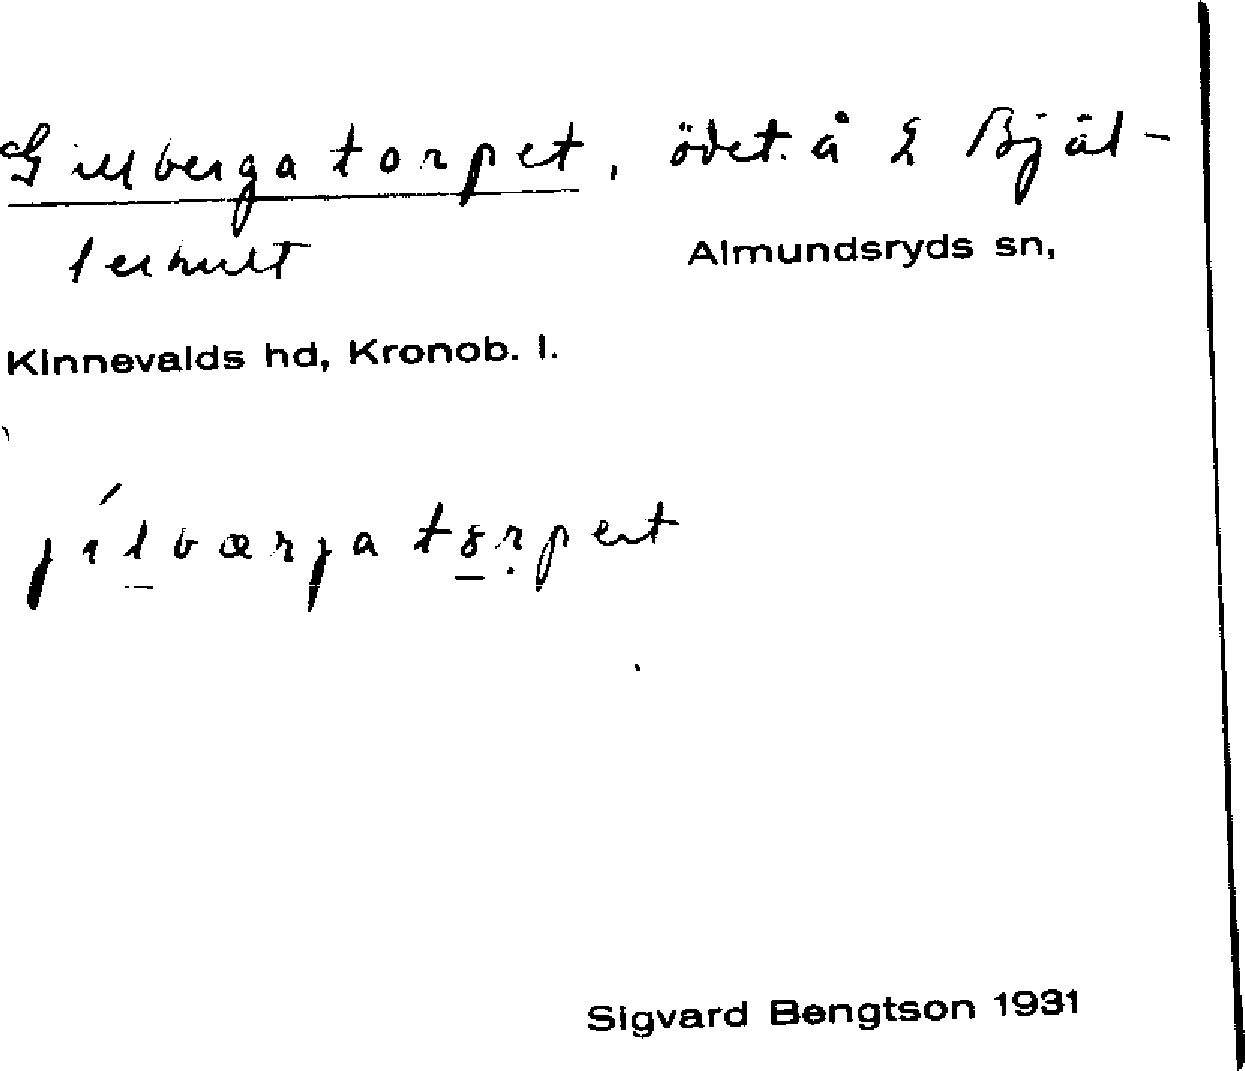 Gillbergatorpet, ödet. å L Bjäl-
lerhult
Almundsryds sn,
Kinnevalds hd, Kronob. l.
Sigvard Bengtson 1931